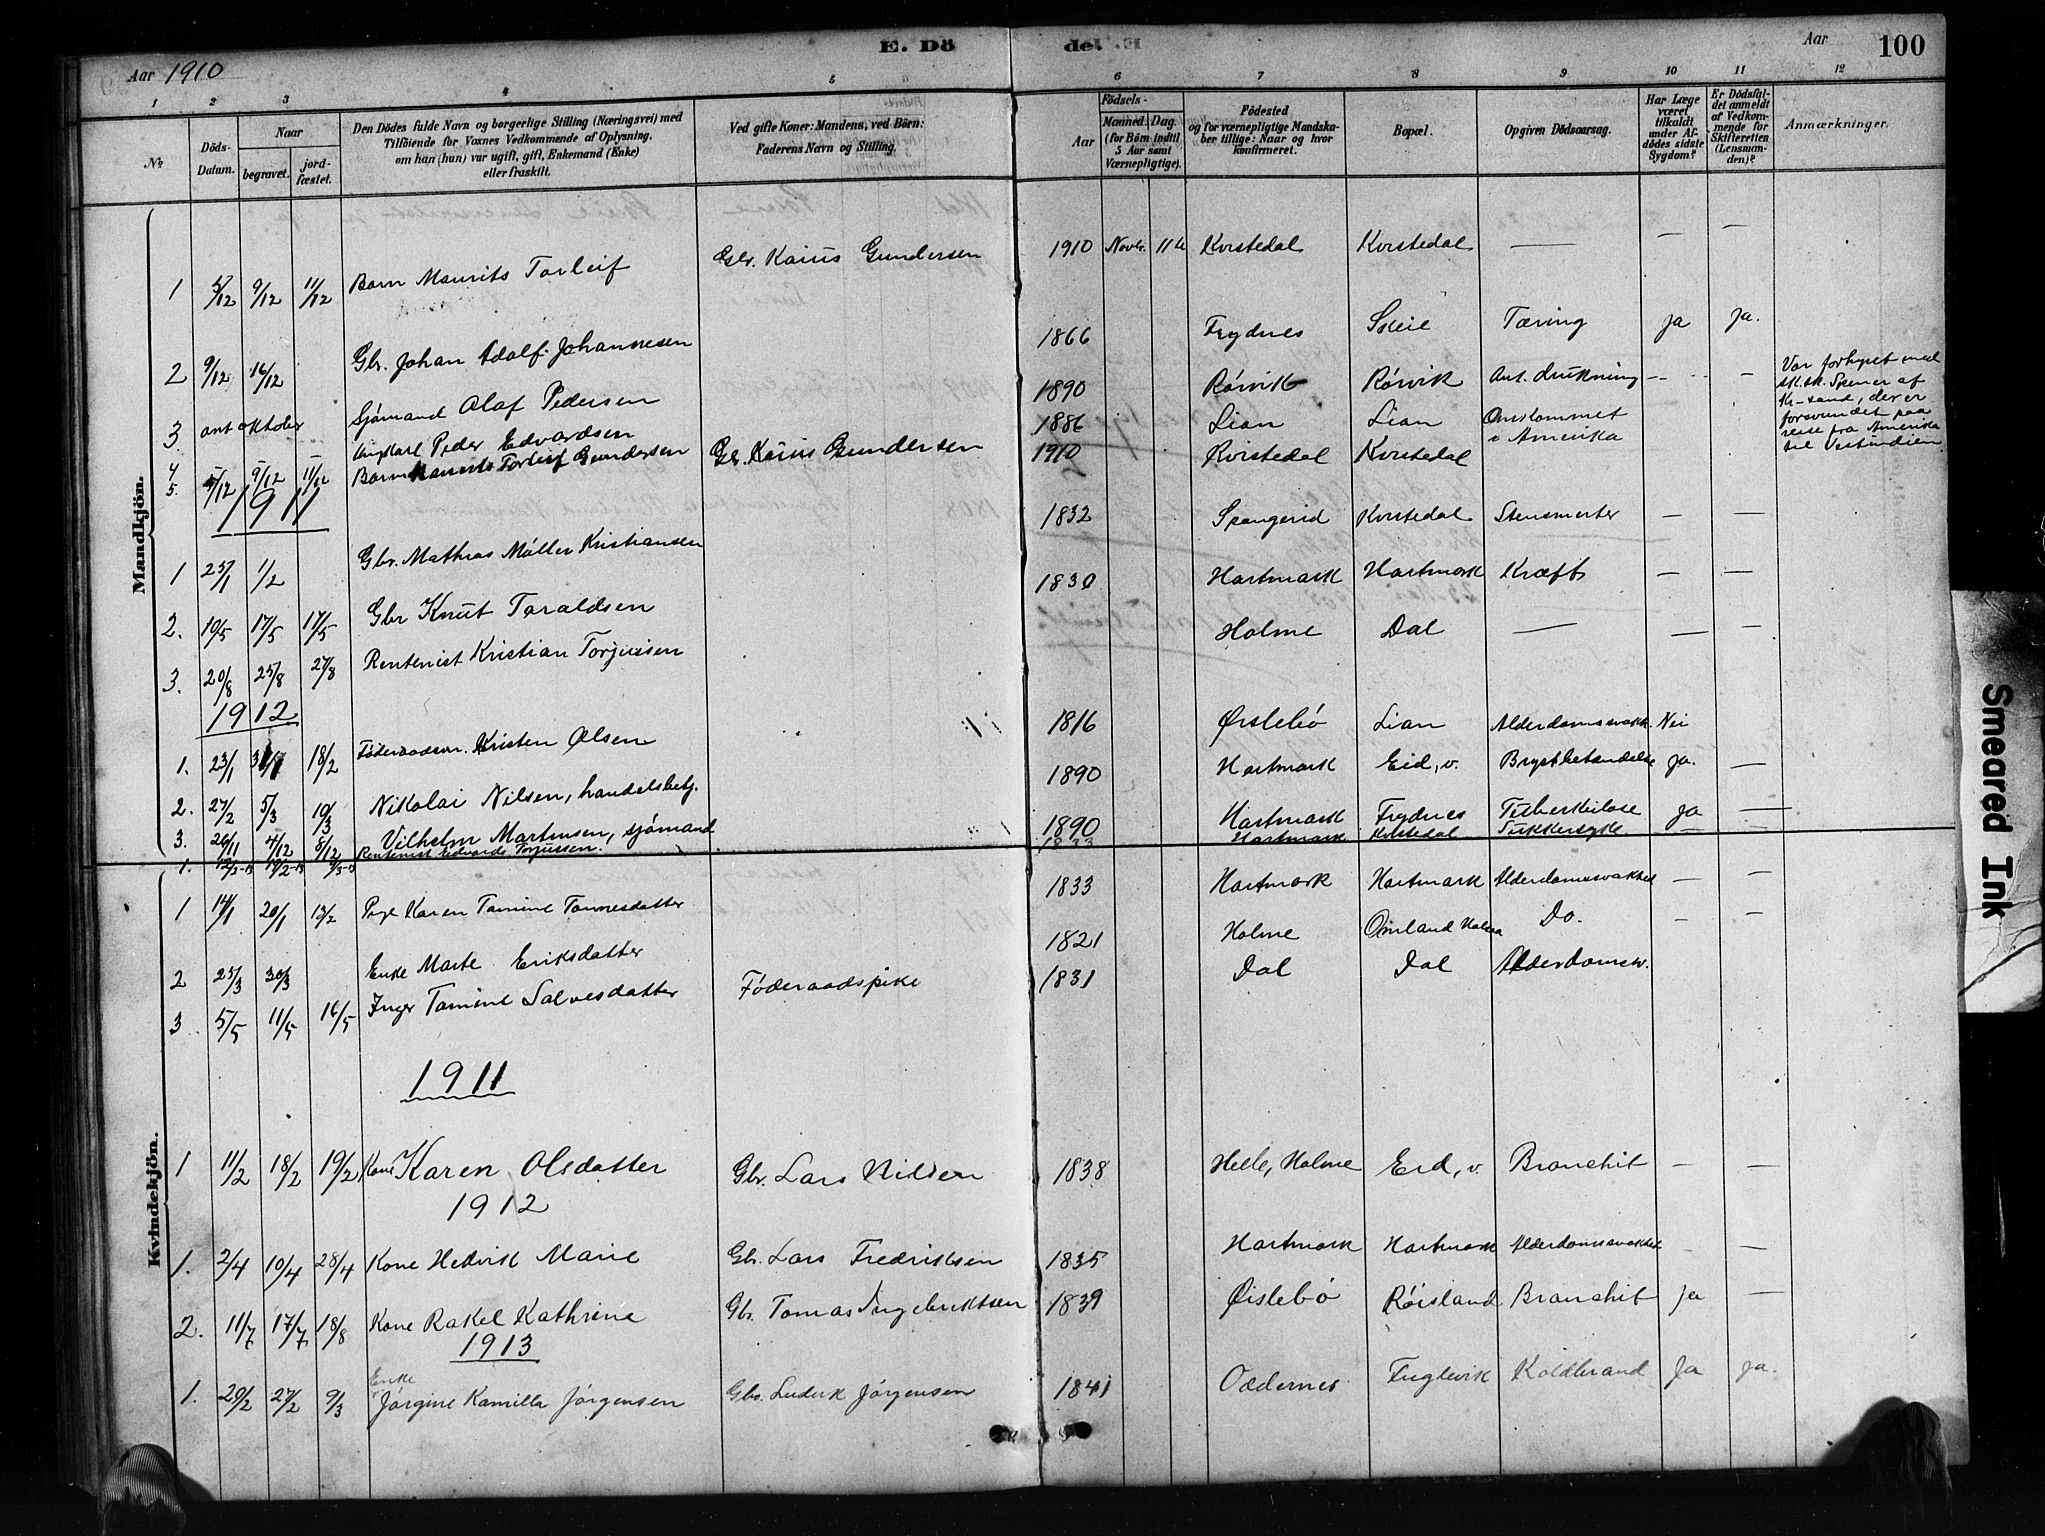 E. Dö de.
Aar 1910
Aar
100
1 2 3 4 5 6 7 8 9 10 11 12
№
Döds-Datum.
Naar
begravet.
jord-fæstet.
Den Dödes fulde Navn og borgerlige Stilling (Næringsvei) med
Tilföiende for Voxnes Vedkommende af Oplysning,
om han (hun) var ugift, gift, Enkemand (Enke)
eller fraskilt.
Ved gifte Koner: Mandens, ved Börn:
Faderens Navn og Stilling.
Födsels-
Aar
Maaned. Dag.
(for Börn indtil
5 Aar samt
Værnepligtige).
Födested
og for værnepligtige Mandska-
ber tillige: Naar og hvor
konfirmeret.
Bopæl.
Opgiven Dödsaarsag.
Har Læge
været
tilkaldt
under Af-
dödes sidste
Sygdom?
Er Dödsfal-
det anmeldt
af Vedkom-
mende for
Skifteretten
(Lensman-
den)?
Anmærkninger.
Mandkjön.
1 5/12 9/12 11/12 Barn Maurits Torleif Gbr. Kaius Gundersen 1910 Novbr. 11te Kvistedal Kvistedal — — —
2 9/12 16/12 Gbr. Johan Adolf Johannesen 1866 Frydnes Skeie Tæring ja ja.
3 ant oktober Sjømand Olaf Pedersen 1890 Rørvik Rørvik Ant. drukning — —
Var forhyret med
sk.sk. Spener af
Kr-sand, der er
forsvundet paa
reise fra Amerika
til Vestindien
4 Ungkarl Peder Edvardsen 1886 Lian Lian Omkommet
i Amerika
5. 5/12 9/12 11/12 Barn Maurits Torleif Gundersen Gbr. Kaius Gundersen 1910 Kvistedal Kvistedal
1911
1 25/1 1/2 Gbr. Mathias Møller Kristiansen 1832 Spangerid Kvistedal Stensmerter — —
2. 10/5 17/5 17/5 Gbr Knut Taraldsen 1830 Hartmark Hartmark Kræft — —
3. 20/8 25/8 27/8 Rentenist Kristian Torjussen Holme Dal — — —
1912
1. 23/1 18/2 Føderaadsm. Kristen Olsen 1816 Øislebø Lian Alderdomssvakh. Nei
2. 27/2 5/3 10/3 Nikolai Nilsen, handelsbetj. 1890 Hartmark Eid, v. Brystbetændelse Ja. —
3. 26/11 4/12 8/12 Vilhelm Martinsen, sjømand 1890 Hartmark Frydnes Tuberkulose Ja —
1. 12/2-13 19/2-13 9/3-13 Rentenist Edvard Torjussen. 1833 Hartmark Kvistedal Sukkersyke. —
Kvindekjön.
1 14/1 20/1 13/2 Pige Karen Tamine Tønnesdatter 1833 Hartmark Hartmark Alderdomssvakhed — —
2 25/3 30/3 Enke Marte Eriksdatter 1821 Holme Omland Holme Do. — —
3 5/5 11/5 16/5 Inger Tamine Salvesdatter Føderaadspike 1831 Dal Dal Alderdomsv.
1911
1 11/2 18/2 19/2 Kone Karen Olsdatter Gbr. Lars Nilsen 1838 Helle, Holme Eid, v. Bronchit — —
1912
1. 2/4 10/4 28/4 Kone Hedvik Marie Gb. Lars Fredriksen 1835 Hartmark Hartmark Alderdomssvakhed — —
2. 11/7 17/7 18/8 Kone Rakel Kathrine Gb. Tomas Ingebriktsen 1839 Øislebø Røisland Bronchit Ja —
1913
1. 20/2 27/2 9/3 Enke Jørgine Kamilla Jørgensen Gbr. Ludvk Jørgensen 1841 Oddernes Fuglevik Koldbrand Ja Ja.
Smeared Ink